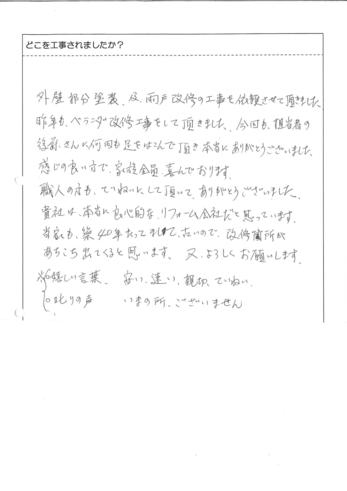 どこを工事されましたか？
外壁部分塗装、及、雨戸改修の工事を依頼させて頂きました、
昨年も、ベランダ改修工事をして頂きました、今回も、担当者の
さんに何回も足をはこんで頂き本当にありがとうございました、
感じの良い方で、家族全員、喜んでおります。
職人の方も、ていねいにして頂いて、ありがとうございました、
貴社は、本当に良心的な、リフォーム会社だと思っています。
当家も、築40年たってまして、古いので、改修箇所が
あちこち出てくると思います。又、よろしくお願いします。
嬉しい言葉 安い、速い、親切、ていねい、
お叱りの声 いまの所、ございません